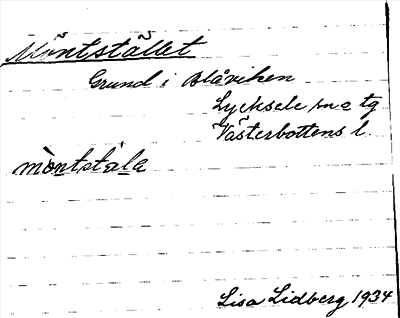 Möntstället
Grund i Blåviken
Lycksele sn o tg
Västerbottens l.
möntstäla
Lisa Lidberg 1934